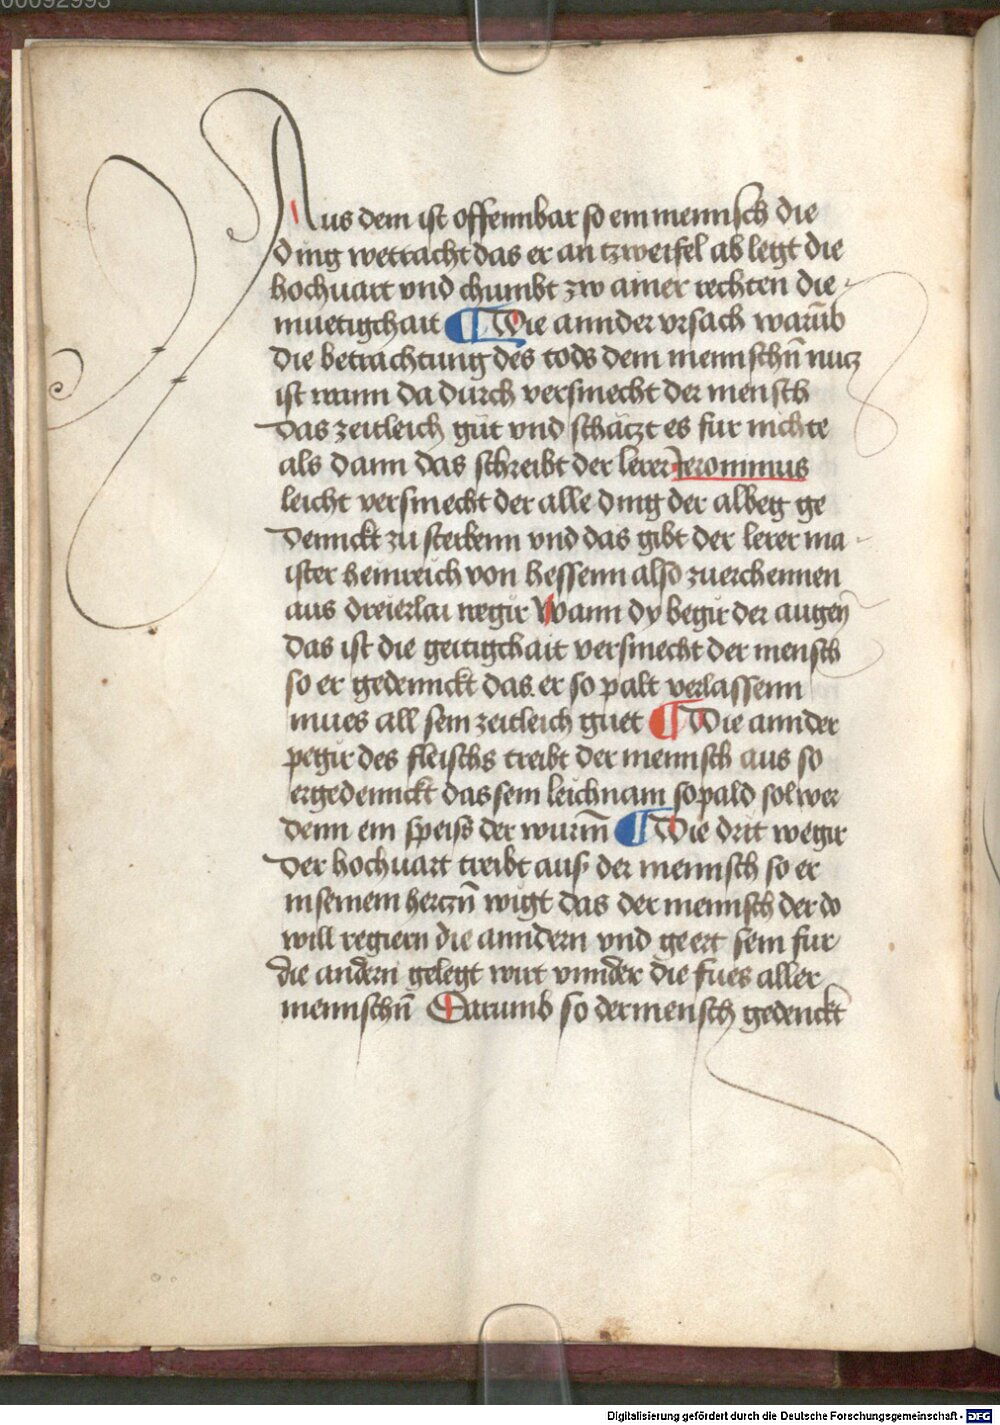 00092993
Aus dem ist offennbar so ein mennsch die
ding wetracht das er an tzweifel ab legt die
hochuart vnd chumbt zw ainer rechten die-
muetigchait ¶ Die annder vrsach warūb
die betrachtung des tods dem mennschn̄ nutz
ist wann da durch versmecht der mensch
das zeitleich guͤt vnd schätzt es fur nichte
als dann das schreibt der lerer Jeronimus
leicht versmecht der alle ding der albeg ge
dennckt zu sterbenn vnd das gibt der lerer ma-
ister heinreich von hessenn also zuerchennen
aus dreierlai wegir Wann dy begir der augen
das ist die geitigchait versmecht der mensch
so er gedennckt das er so palt verlassenn
mues all sein zeitleich guet ¶ Die annder
pegir des fleischs treibt der mennsch aus so
er gedennckt das sein leichnam so pald sol wer
denn ein speiss der wurm̄ ¶ Die drit wegir
der hochuart treibt aus der mennsch so er
in seinem hertzn̄ wigt das der mennsch der do
will regiern die anndern vnd geert sein fur
die andern gelegt wirt vnnder die fues aller
mennschn̄ Darumb so der mensch gedenckt
Digitalisierung gefördert durch die Deutsche Forschungsgemeinschaft - DFG